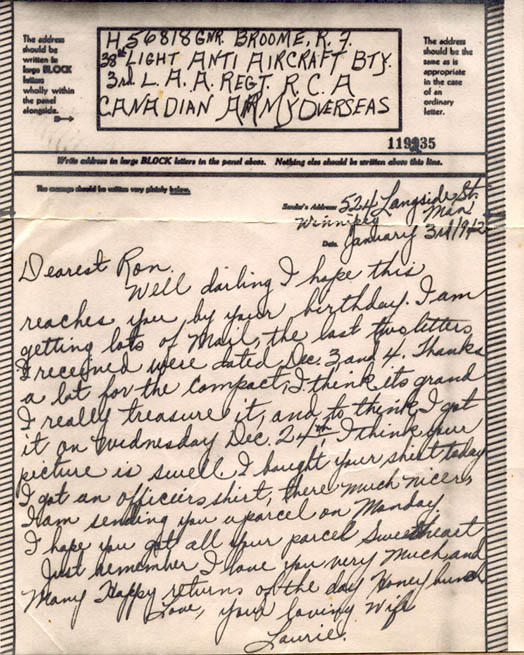 The address
should be
written in
large BLOCK
letters
wholly within
the panel
alongside.
H 56818 GNR. BROOME, R. J.
38th LIGHT ANTI AIRCRAFT BTY.
3rd. L. A. A. REGT. R. C. A
CANADIAN ARMY OVERSEAS
The address
should be the
same as is
appropriate
in the case
of an
ordinary
letter.
119235
Write address in large BLOCK letters in the panel above. Nothing else should be written above this line.
The message should be written very plainly below.
Sender's Address 524 Langside St.
Winnipeg Man.
Date. January 3rd/1942
Dearest Ron.
Well darling I hope this
reaches you by your birthday. I am
getting lots of Mail, the last two letters
I received were dated Dec. 3 and 4. Thanks
a lot for the compact, I think its grand
I really treasure it, and to think I got
it on Wednesday Dec. 24th, I think your
picture is swell. I bought your shirt today
I got an officers shirt, there much nicer,
I am sending you a parcel on Monday
I hope you got all your parcel Sweetheart
Just remember I love you very much and
Many Happy returns of the day Honey bunch
Love, your loving Wife
Laurie.